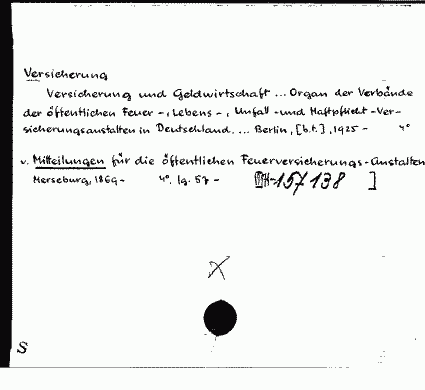 Versicherung
Versicherung und Geldwirtschaft ... Organ der Verbände
der öffentlichen Feuer-, Lebens-, Unfall- und Haftpflicht-Ver-
sicherungsanstalten in Deutschland. ... Berlin, [b.t.], 1925- 4°
v. Mitteilungen für die öffentlichen Feuerversicherungs-Anstalten
Merseburg, 1869- 4°. Jg. 57- 157138 ]
X
S